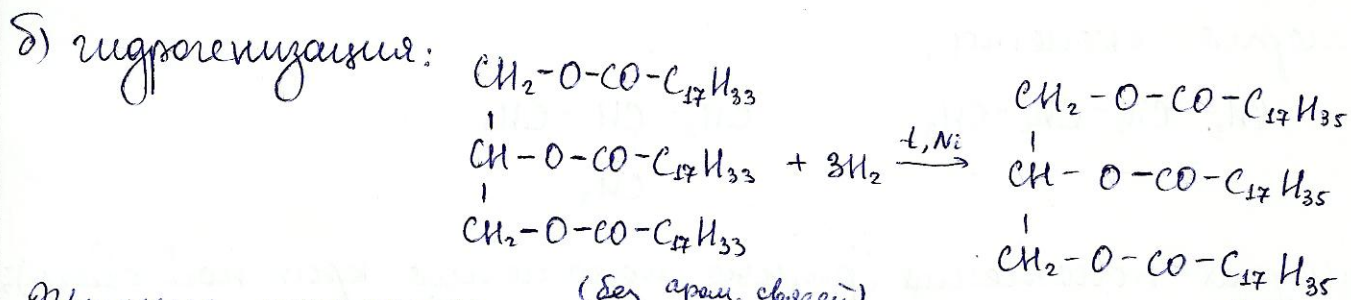 б) гидрогенизация:
CH₂-O-CO-C₁₇H₃₃
CH-O-CO-C₁₇H₃₃ + 3H₂ t, Ni →
CH₂-O-CO-C₁₇H₃₃
CH₂-O-CO-C₁₇H₃₅
CH-O-CO-C₁₇H₃₅
CH₂-O-CO-C₁₇H₃₅
(без аром. связей)